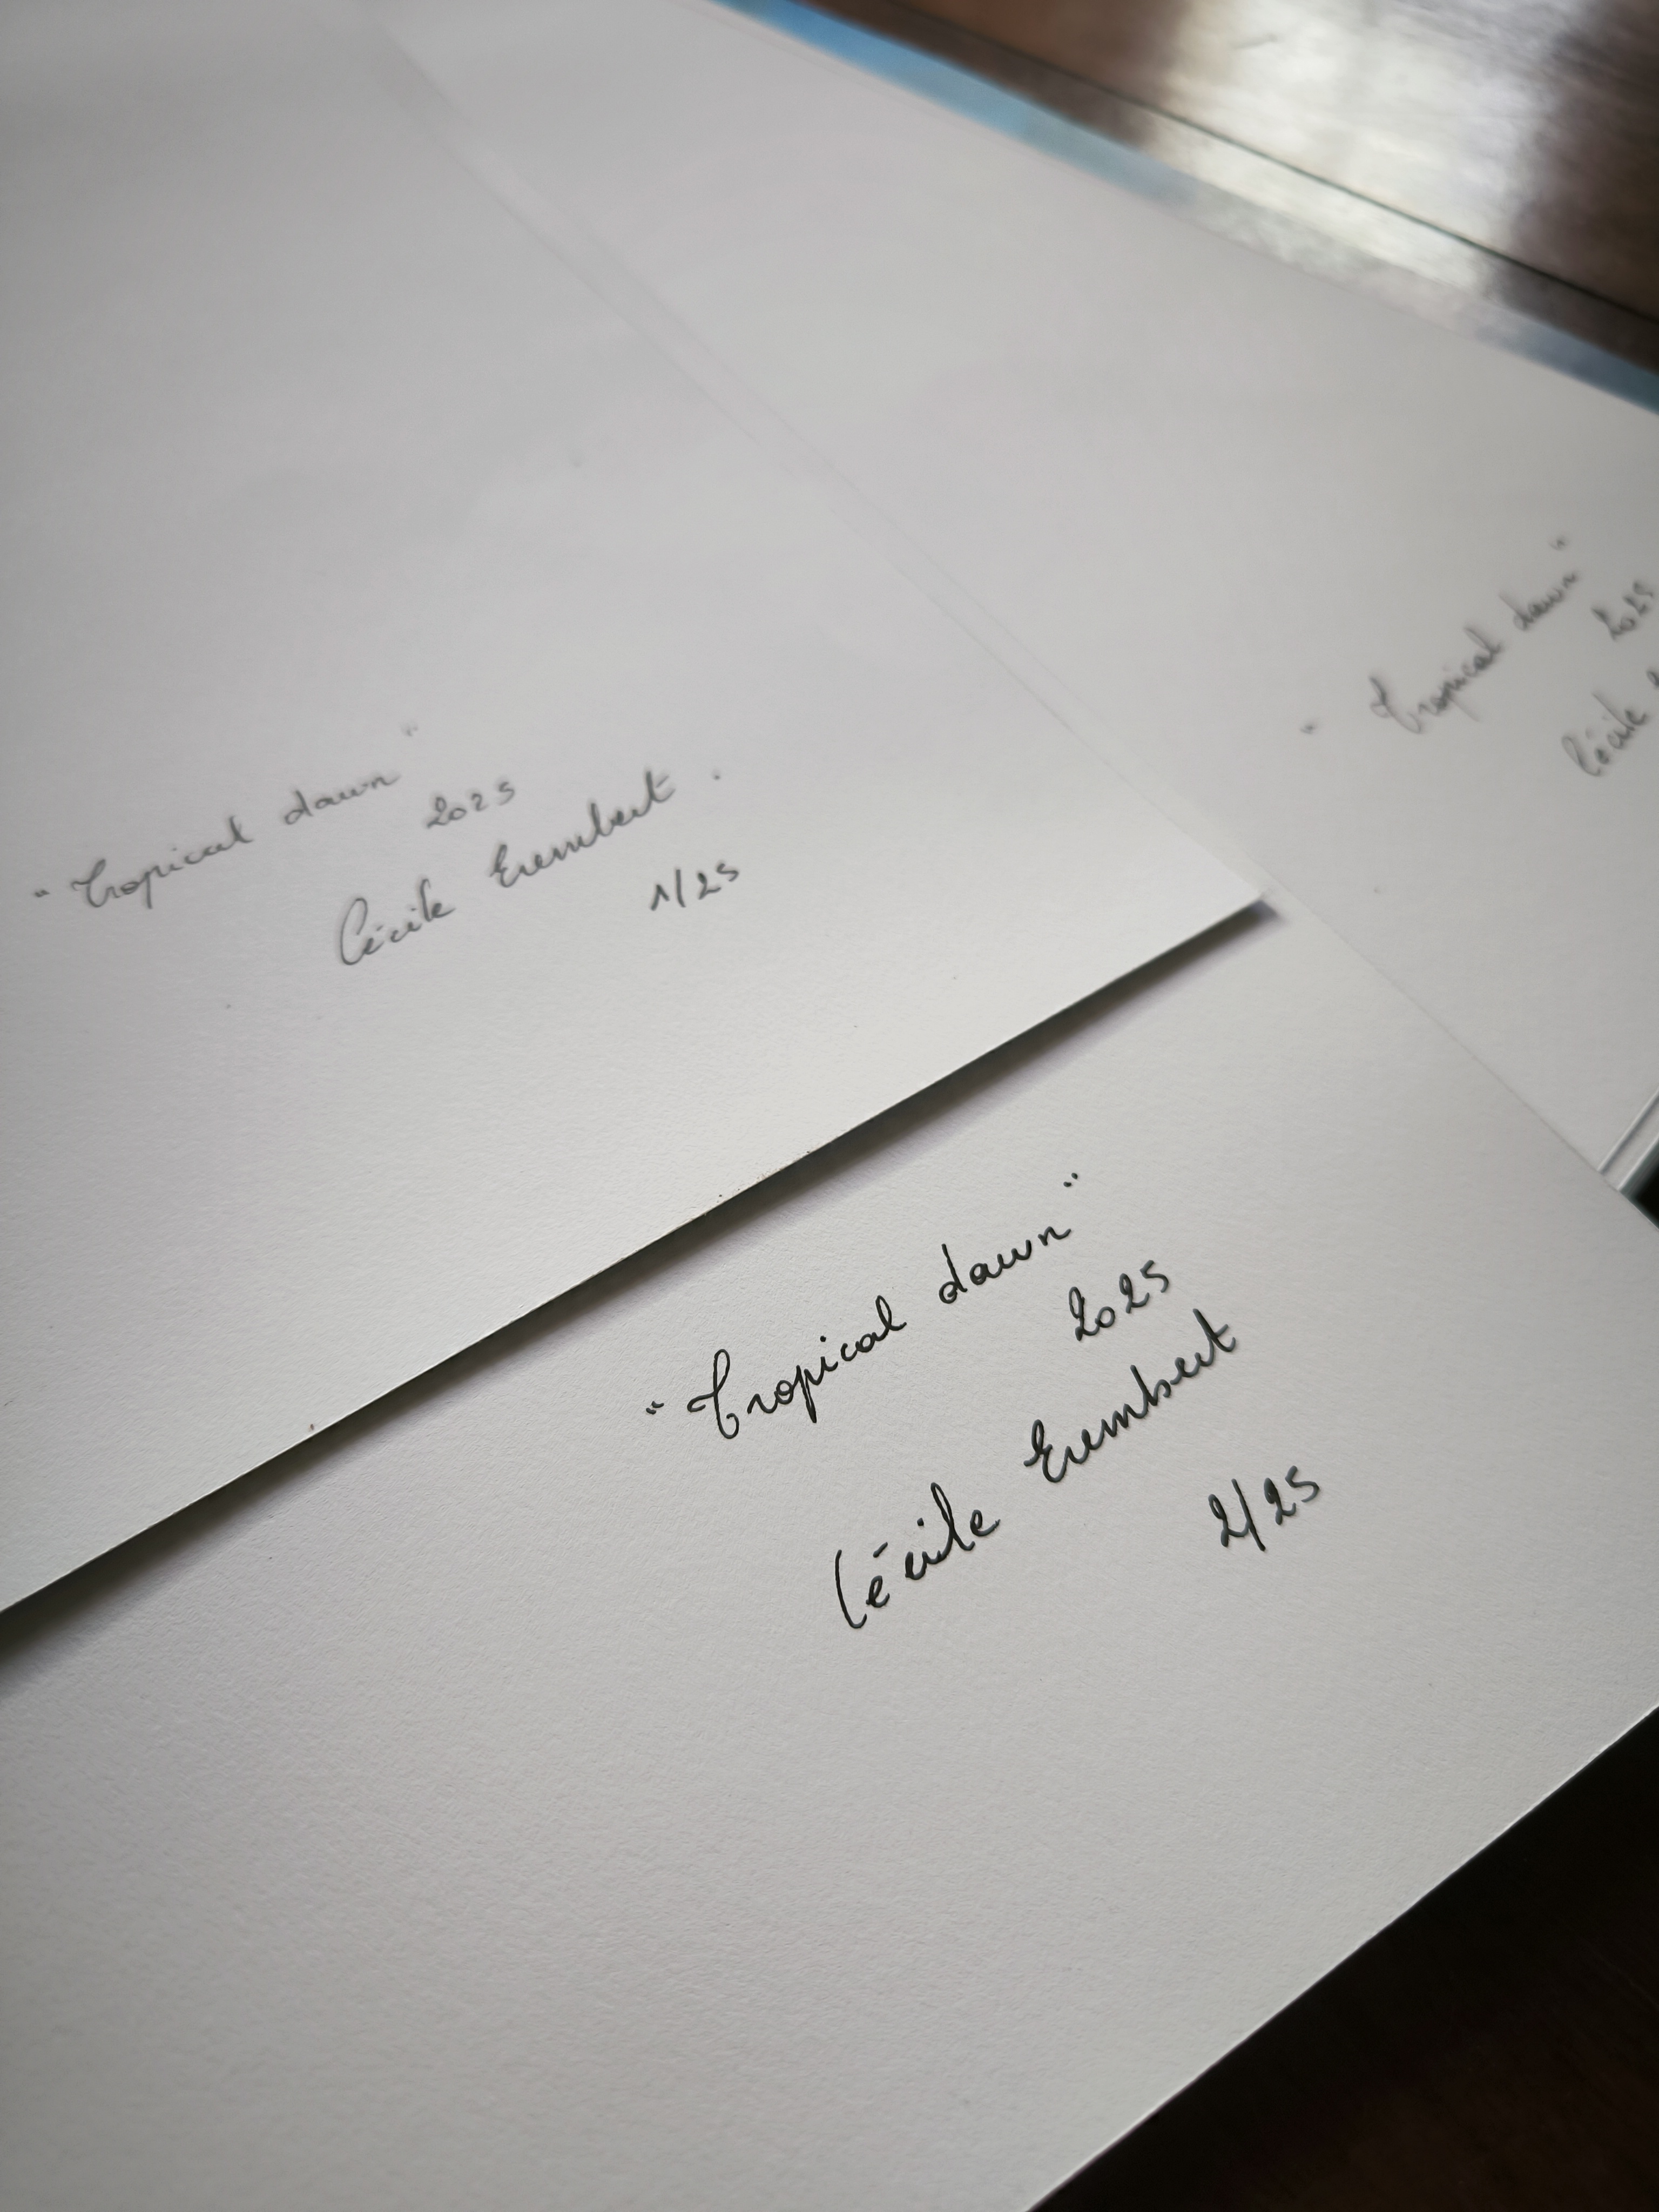 "Tropical dawn"
2025
Cécile Erembert.
1/25
"Tropical dawn"
2025
Cécile
"Tropical dawn"
2025
Cécile Erembert
2/25